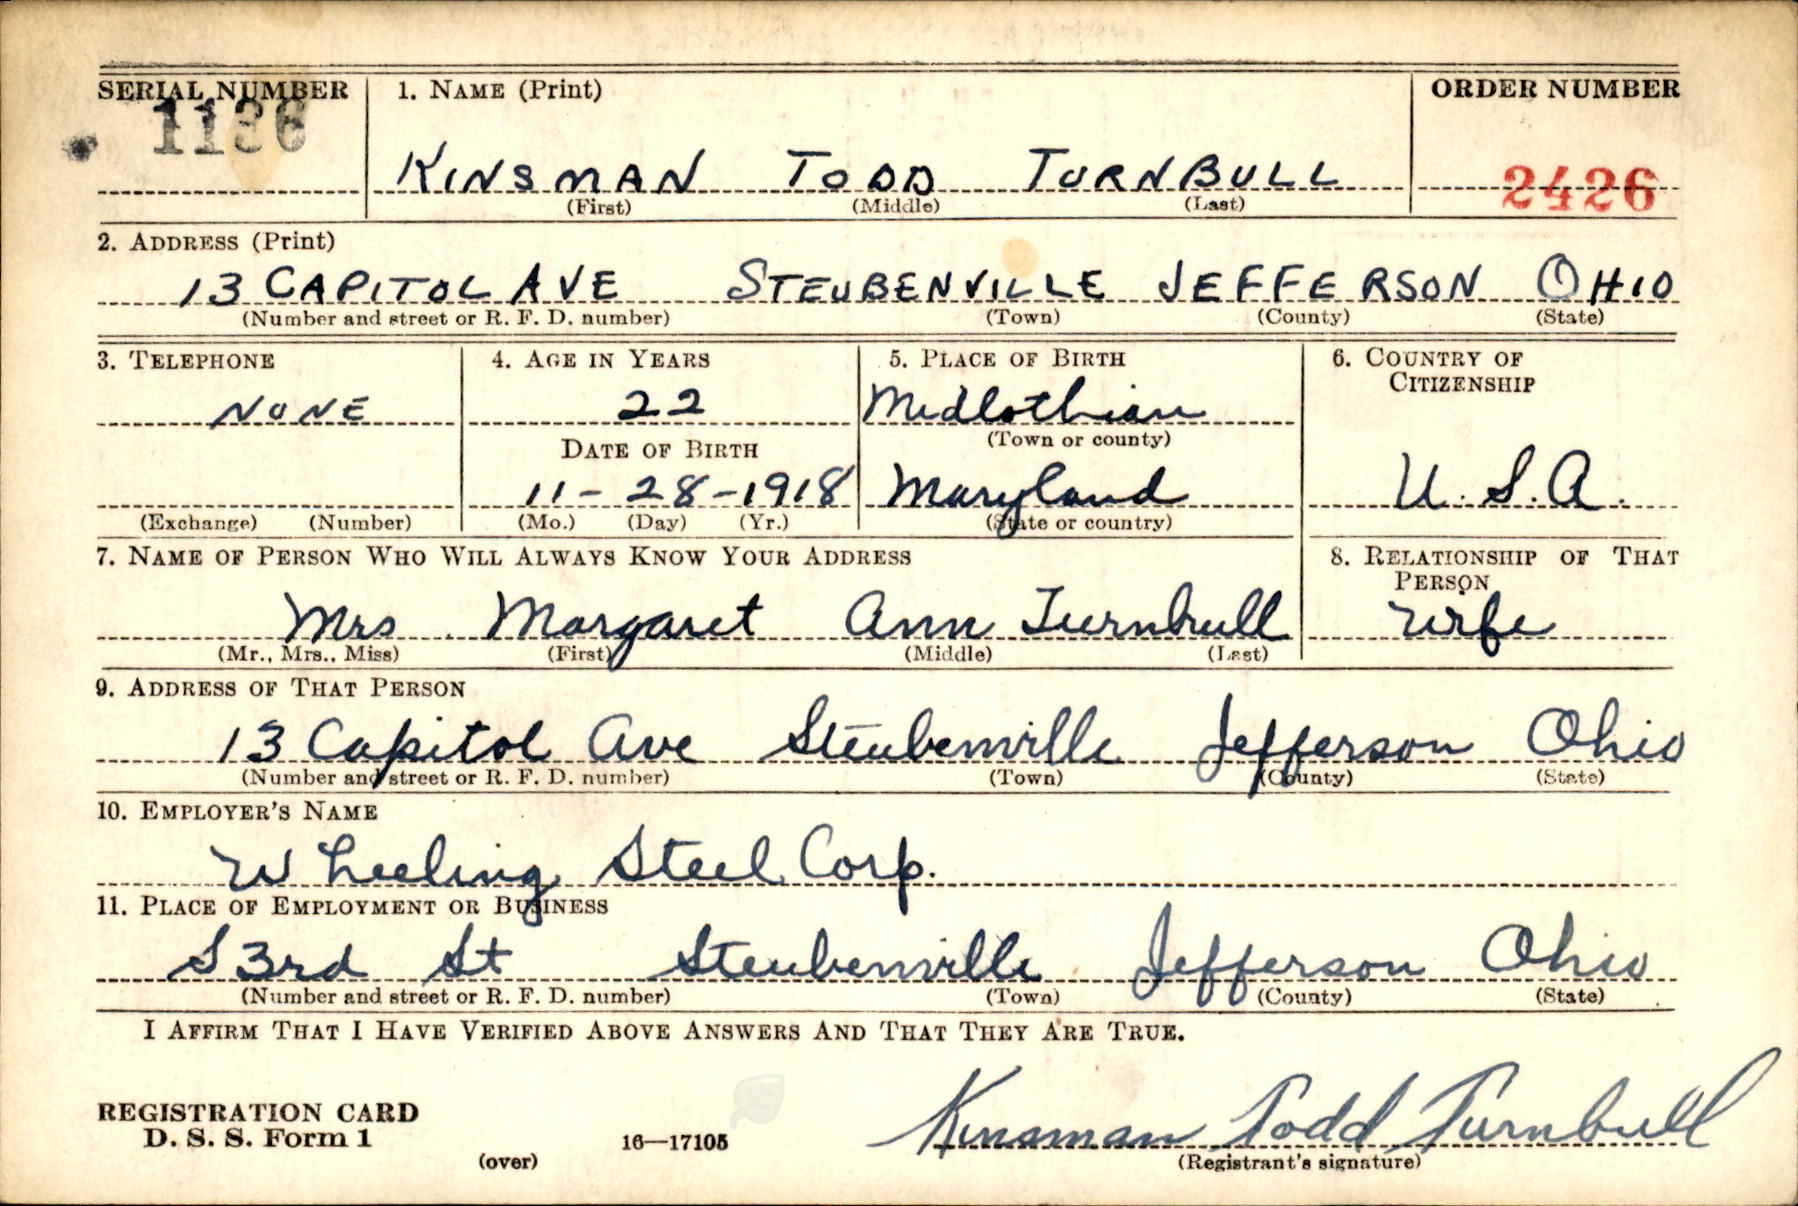 SERIAL NUMBER 1. NAME (Print) ORDER NUMBER
1136
KINSMAN TODD TURNBULL 2426
(First) (Middle) (Last)
2. ADDRESS (Print)
13 CAPITOL AVE STEUBENVILLE JEFFERSON OHIO
(Number and street or R. F. D. number) (Town) (County) (State)
3. TELEPHONE 4. AGE IN YEARS 5. PLACE OF BIRTH 6. COUNTRY OF CITIZENSHIP
NONE 22 Midlothian
DATE OF BIRTH (Town or county)
11-28-1918 Maryland U.S.A.
(Exchange) (Number) (Mo.) (Day) (Yr.) (State or country)
7. NAME OF PERSON WHO WILL ALWAYS KNOW YOUR ADDRESS 8. RELATIONSHIP OF THAT PERSON
Mrs Margaret Ann Turnbull Wife
(Mr., Mrs., Miss) (First) (Middle) (Last)
9. ADDRESS OF THAT PERSON
13 Capitol Ave Steubenville Jefferson Ohio
(Number and street or R. F. D. number) (Town) (County) (State)
10. EMPLOYER'S NAME
Wheeling Steel Corp.
11. PLACE OF EMPLOYMENT OR BUSINESS
S 3rd St Steubenville Jefferson Ohio
(Number and street or R. F. D. number) (Town) (County) (State)
I AFFIRM THAT I HAVE VERIFIED ABOVE ANSWERS AND THAT THEY ARE TRUE.
REGISTRATION CARD
D. S. S. Form 1 16—17105 Kinsman Todd Turnbull
(over) (Registrant's signature)